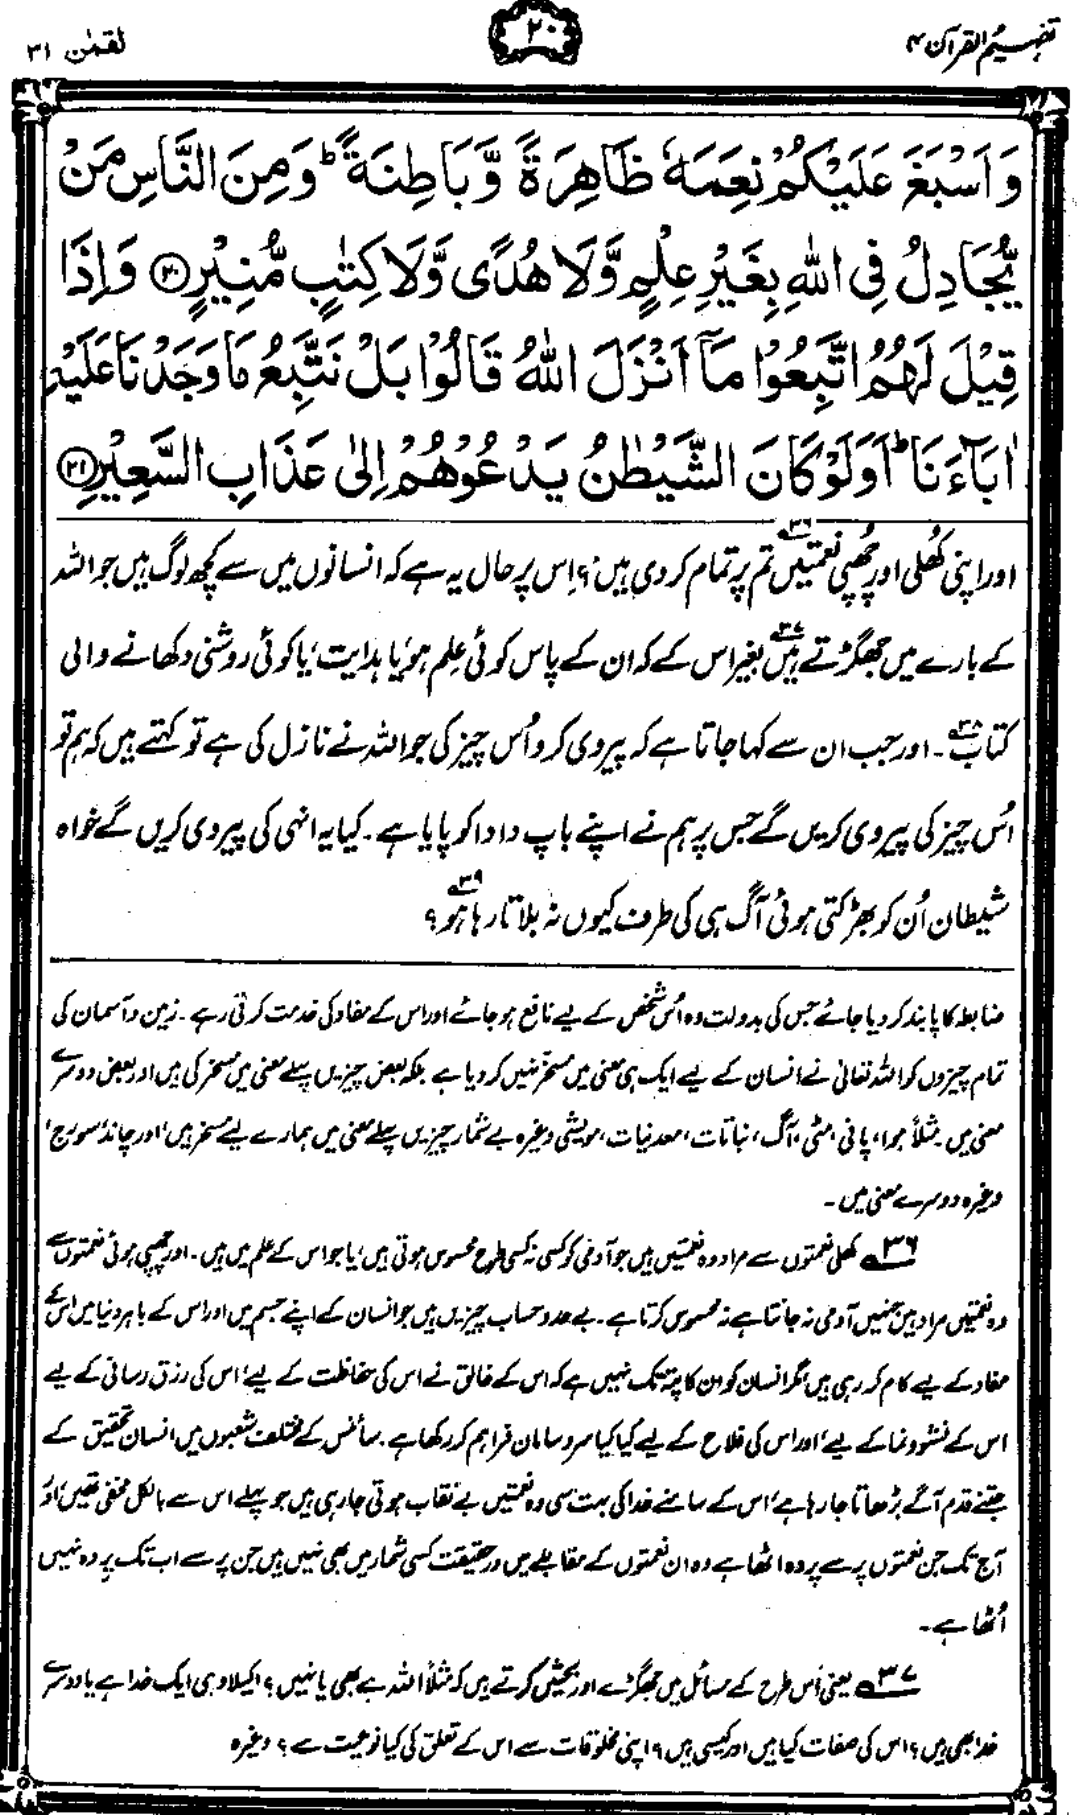 تفہیم القرآن ۴
۲۰
لقمٰن ۳۱
وَاَسْبَغَ عَلَيْكُمْ نِعَمَهٗ ظَاهِرَةً وَّبَاطِنَةً ؕ وَمِنَ النَّاسِ مَنْ
يُّجَادِلُ فِى اللّٰهِ بِغَيْرِ عِلْمٍ وَّلَا هُدًى وَّلَا كِتٰبٍ مُّنِيْرٍ ﴿۲۰﴾ وَاِذَا
قِيْلَ لَهُمُ اتَّبِعُوْا مَاۤ اَنْزَلَ اللّٰهُ قَالُوْا بَلْ نَتَّبِعُ مَا وَجَدْنَا عَلَيْهِ
اٰبَآءَنَا ؕ اَوَلَوْ كَانَ الشَّيْطٰنُ يَدْعُوْهُمْ اِلٰى عَذَابِ السَّعِيْرِ ﴿۲۱﴾
اور اپنی کھُلی اور چھُپی نعمتیں۳۶ تم پر تمام کردی ہیں؟ اِس پر حال یہ ہے کہ انسانوں میں سے کچھ لوگ ہیں جو اللہ
کے بارے میں جھگڑتے ہیں۳۷ بغیر اس کے کہ ان کے پاس کوئی علم ہو، یا ہدایت، یا کوئی روشنی دکھانے والی
کتاب۳۸۔ اور جب ان سے کہا جاتا ہے کہ پیروی کرو اُس چیز کی جو اللہ نے نازل کی ہے تو کہتے ہیں کہ ہم تو
اُس چیز کی پیروی کریں گے جس پر ہم نے اپنے باپ دادا کو پایا ہے۔ کیا یہ انہی کی پیروی کریں گے خواہ
شیطان اُن کو بھڑکتی ہوئی آگ ہی کی طرف کیوں نہ بلاتا رہا ہو۳۹؟
ضابطہ کا پابند کر دیا جائے جس کی بدولت وہ اُس شخص کے لیے نافع ہو جائے اور اس کے مفاد کی خدمت کرتی رہے۔ زمین و آسمان کی
تمام چیزوں کو اللہ تعالیٰ نے انسان کے لیے ایک ہی معنی میں مسخر نہیں کر دیا ہے بلکہ بعض چیزیں پہلے معنی میں مسخر کی ہیں اور بعض دوسرے
معنی میں۔ مثلاً ہوا، پانی، مٹی، آگ، نباتات، معدنیات، مویشی وغیرہ بے شمار چیزیں پہلے معنی میں ہمارے لیے مسخر ہیں، اور چاند، سورج،
وغیرہ دوسرے معنی میں۔
۳۶ کھلی نعمتوں سے مراد وہ نعمتیں ہیں جو آدمی کو کسی نہ کسی طرح محسوس ہوتی ہیں، یا جو اس کے علم میں ہیں۔ اور چھپی ہوئی نعمتوں سے
وہ نعمتیں مراد ہیں جنہیں آدمی نہ جانتا ہے نہ محسوس کرتا ہے۔ بے حد و حساب چیزیں ہیں جو انسان کے اپنے جسم میں اور اس کے باہر دنیا میں اس کے
مفاد کے لیے کام کر رہی ہیں، مگر انسان کو ان کا پتہ تک نہیں ہے کہ اس کے خالق نے اس کی حفاظت کے لیے، اس کی رزق رسانی کے لیے
اس کے نشوونما کے لیے، اور اس کی فلاح کے لیے کیا کیا سروسامان فراہم کر رکھا ہے۔ سائنس کے مختلف شعبوں میں انسان تحقیق کے
جتنے قدم آگے بڑھاتا جا رہا ہے، اس کے سامنے خدا کی بہت سی وہ نعمتیں بے نقاب ہوتی جا رہی ہیں جو پہلے اس سے بالکل مخفی تھیں، اور
آج تک جن نعمتوں پر سے پردہ اٹھا ہے وہ ان نعمتوں کے مقابلے میں درحقیقت کسی شمار میں بھی نہیں ہیں جن پر سے اب تک پردہ نہیں
اُٹھا ہے۔
۳۷ یعنی اُس طرح کے مسائل میں جھگڑے اور بحثیں کرتے ہیں کہ مثلاً اللہ ہے بھی یا نہیں؟ اکیلا وہی ایک خدا ہے یا دوسرے
خدا بھی ہیں؟ اس کی صفات کیا ہیں اور کیسی ہیں؟ اپنی مخلوقات سے اس کے تعلق کی کیا نوعیت ہے؟ وغیرہ